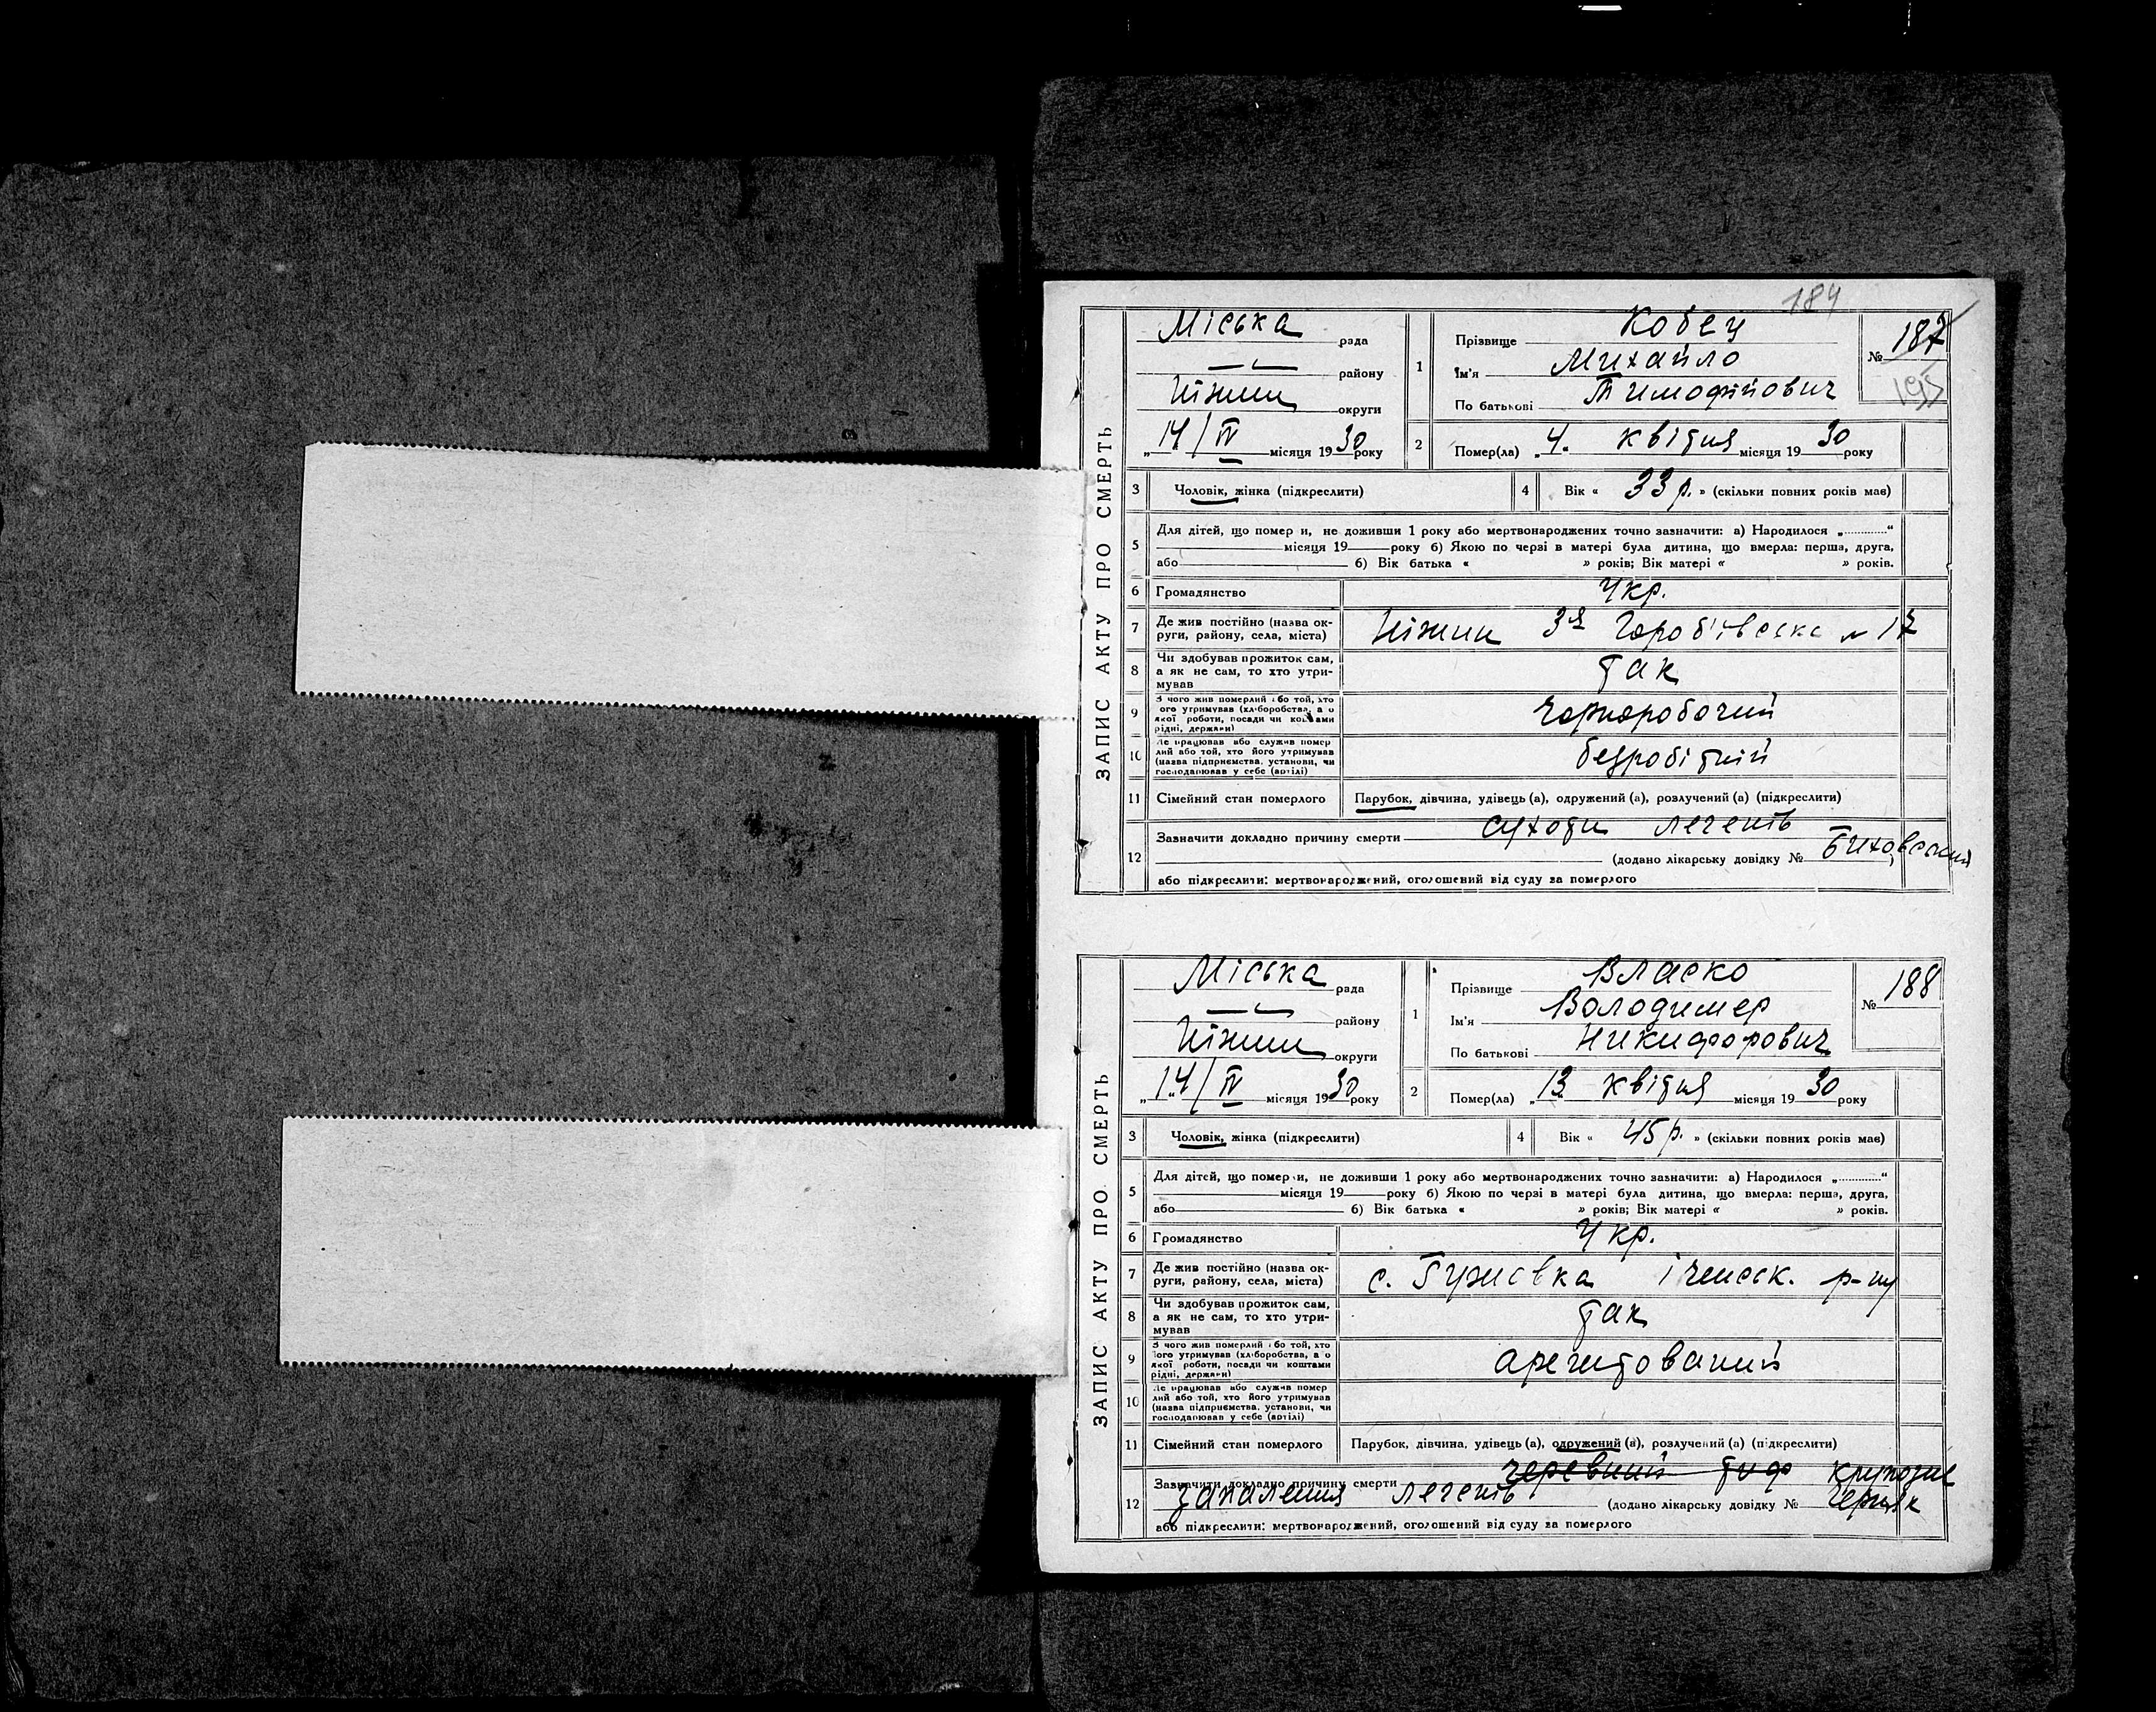 184
ЗАПИС АКТУ ПРО СМЕРТЬ
Міська рада
району
Ніжин округи
„14/IV місяця 1930 року
1 Прізвище Кобец
Ім'я Михайло
По батькові Тимофійович
№ 187
195
2 Помер(ла) „4" квітня місяця 1930 року
3 Чоловік, жінка (підкреслити)
4 Вік « 33 р. » (скільки повних років мав)
5 Для дітей, що помер и, не доживши 1 року або мертвонароджених точно зазначити: а) Народилося „............“
місяця 19 року б) Якою по черзі в матері була дитина, що вмерла: перша, друга,
або 6) Вік батька « » років; Вік матері « » років.
6 Громадянство Укр.
7 Де жив постійно (назва ок-
руги, району, села, міста) Ніжин 3я № 17
8 Чи здобував прожиток сам,
а як не сам, то хто утри-
мував так
9 З чого жив померлий або той, хто
його утримував (хліборобства, з
якої роботи, посади чи коштами
рідні, держави) Чорноробочий
10 Де працював або служив помер
лий або той, хто його утримував
(назва підприємства, установи, чи
господарював у себе (артілі) безробітній
11 Сімейний стан померлого Парубок, дівчина, удівець (а), одружений (а), розлучений (а) (підкреслити)
12 Зазначити докладно причину смерти сухоти легенів
(додано лікарську довідку № Биховський)
або підкреслити: мертвонароджений, оголошений від суду за померлого
ЗАПИС АКТУ ПРО СМЕРТЬ
Міська рада
району
Ніжин округи
„14/IV місяця 1930 року
1 Прізвище Власко
Ім'я Володимер
По батькові Никифорович
№ 188
2 Помер(ла) „13 квітня місяця 1930 року
3 Чоловік, жінка (підкреслити)
4 Вік « 45 р. » (скільки повних років мав)
5 Для дітей, що помер и, не доживши 1 року або мертвонароджених точно зазначити: а) Народилося „............“
місяця 19 року б) Якою по черзі в матері була дитина, що вмерла: перша, друга,
або 6) Вік батька « » років; Вік матері « » років.
6 Громадянство Укр.
7 Де жив постійно (назва ок-
руги, району, села, міста) с. Гужовка Іченськ. р-ну
8 Чи здобував прожиток сам,
а як не сам, то хто утри-
мував так
9 З чого жив померлий або той, хто
його утримував (хліборобства, з
якої роботи, посади чи коштами
рідні, держави) арештований
10 Де працював або служив помер
лий або той, хто його утримував
(назва підприємства, установи, чи
господарював у себе (артілі)
11 Сімейний стан померлого Парубок, дівчина, удівець (а), одружений (а), розлучений (а) (підкреслити)
12 Зазначити докладно причину смерти черевний тиф крупозне
запалення легенів (додано лікарську довідку № Черняк
або підкреслити: мертвонароджений, оголошений від суду за померлого